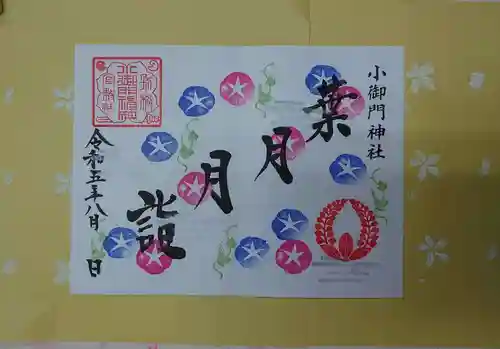 小御門神社
葉月月詣
令和五年八月 日